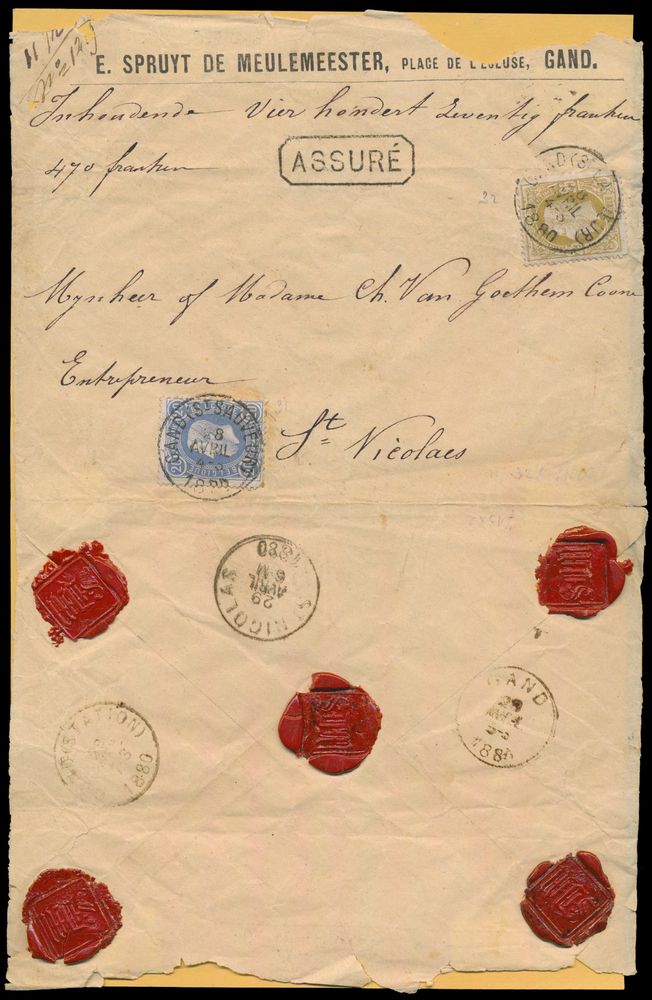 E. SPRUYT DE MEULEMEESTER, PLACE DE L'ECLUSE, GAND.
Inhoudende Vier hondert Zeventig franken
470 franken
ASSURÉ
GAND (ST SAUVEUR)
AVRIL
1880
Mynheer of Madame Ch. Van Goethem Coone
Entrepreneur
St Nicolaes
GAND (ST SAUVEUR)
28
AVRIL
1880
BELGIQUE
ST NICOLAS
29
AVRIL
6-M
1880
GAND
29
1880
(STATION)
1880